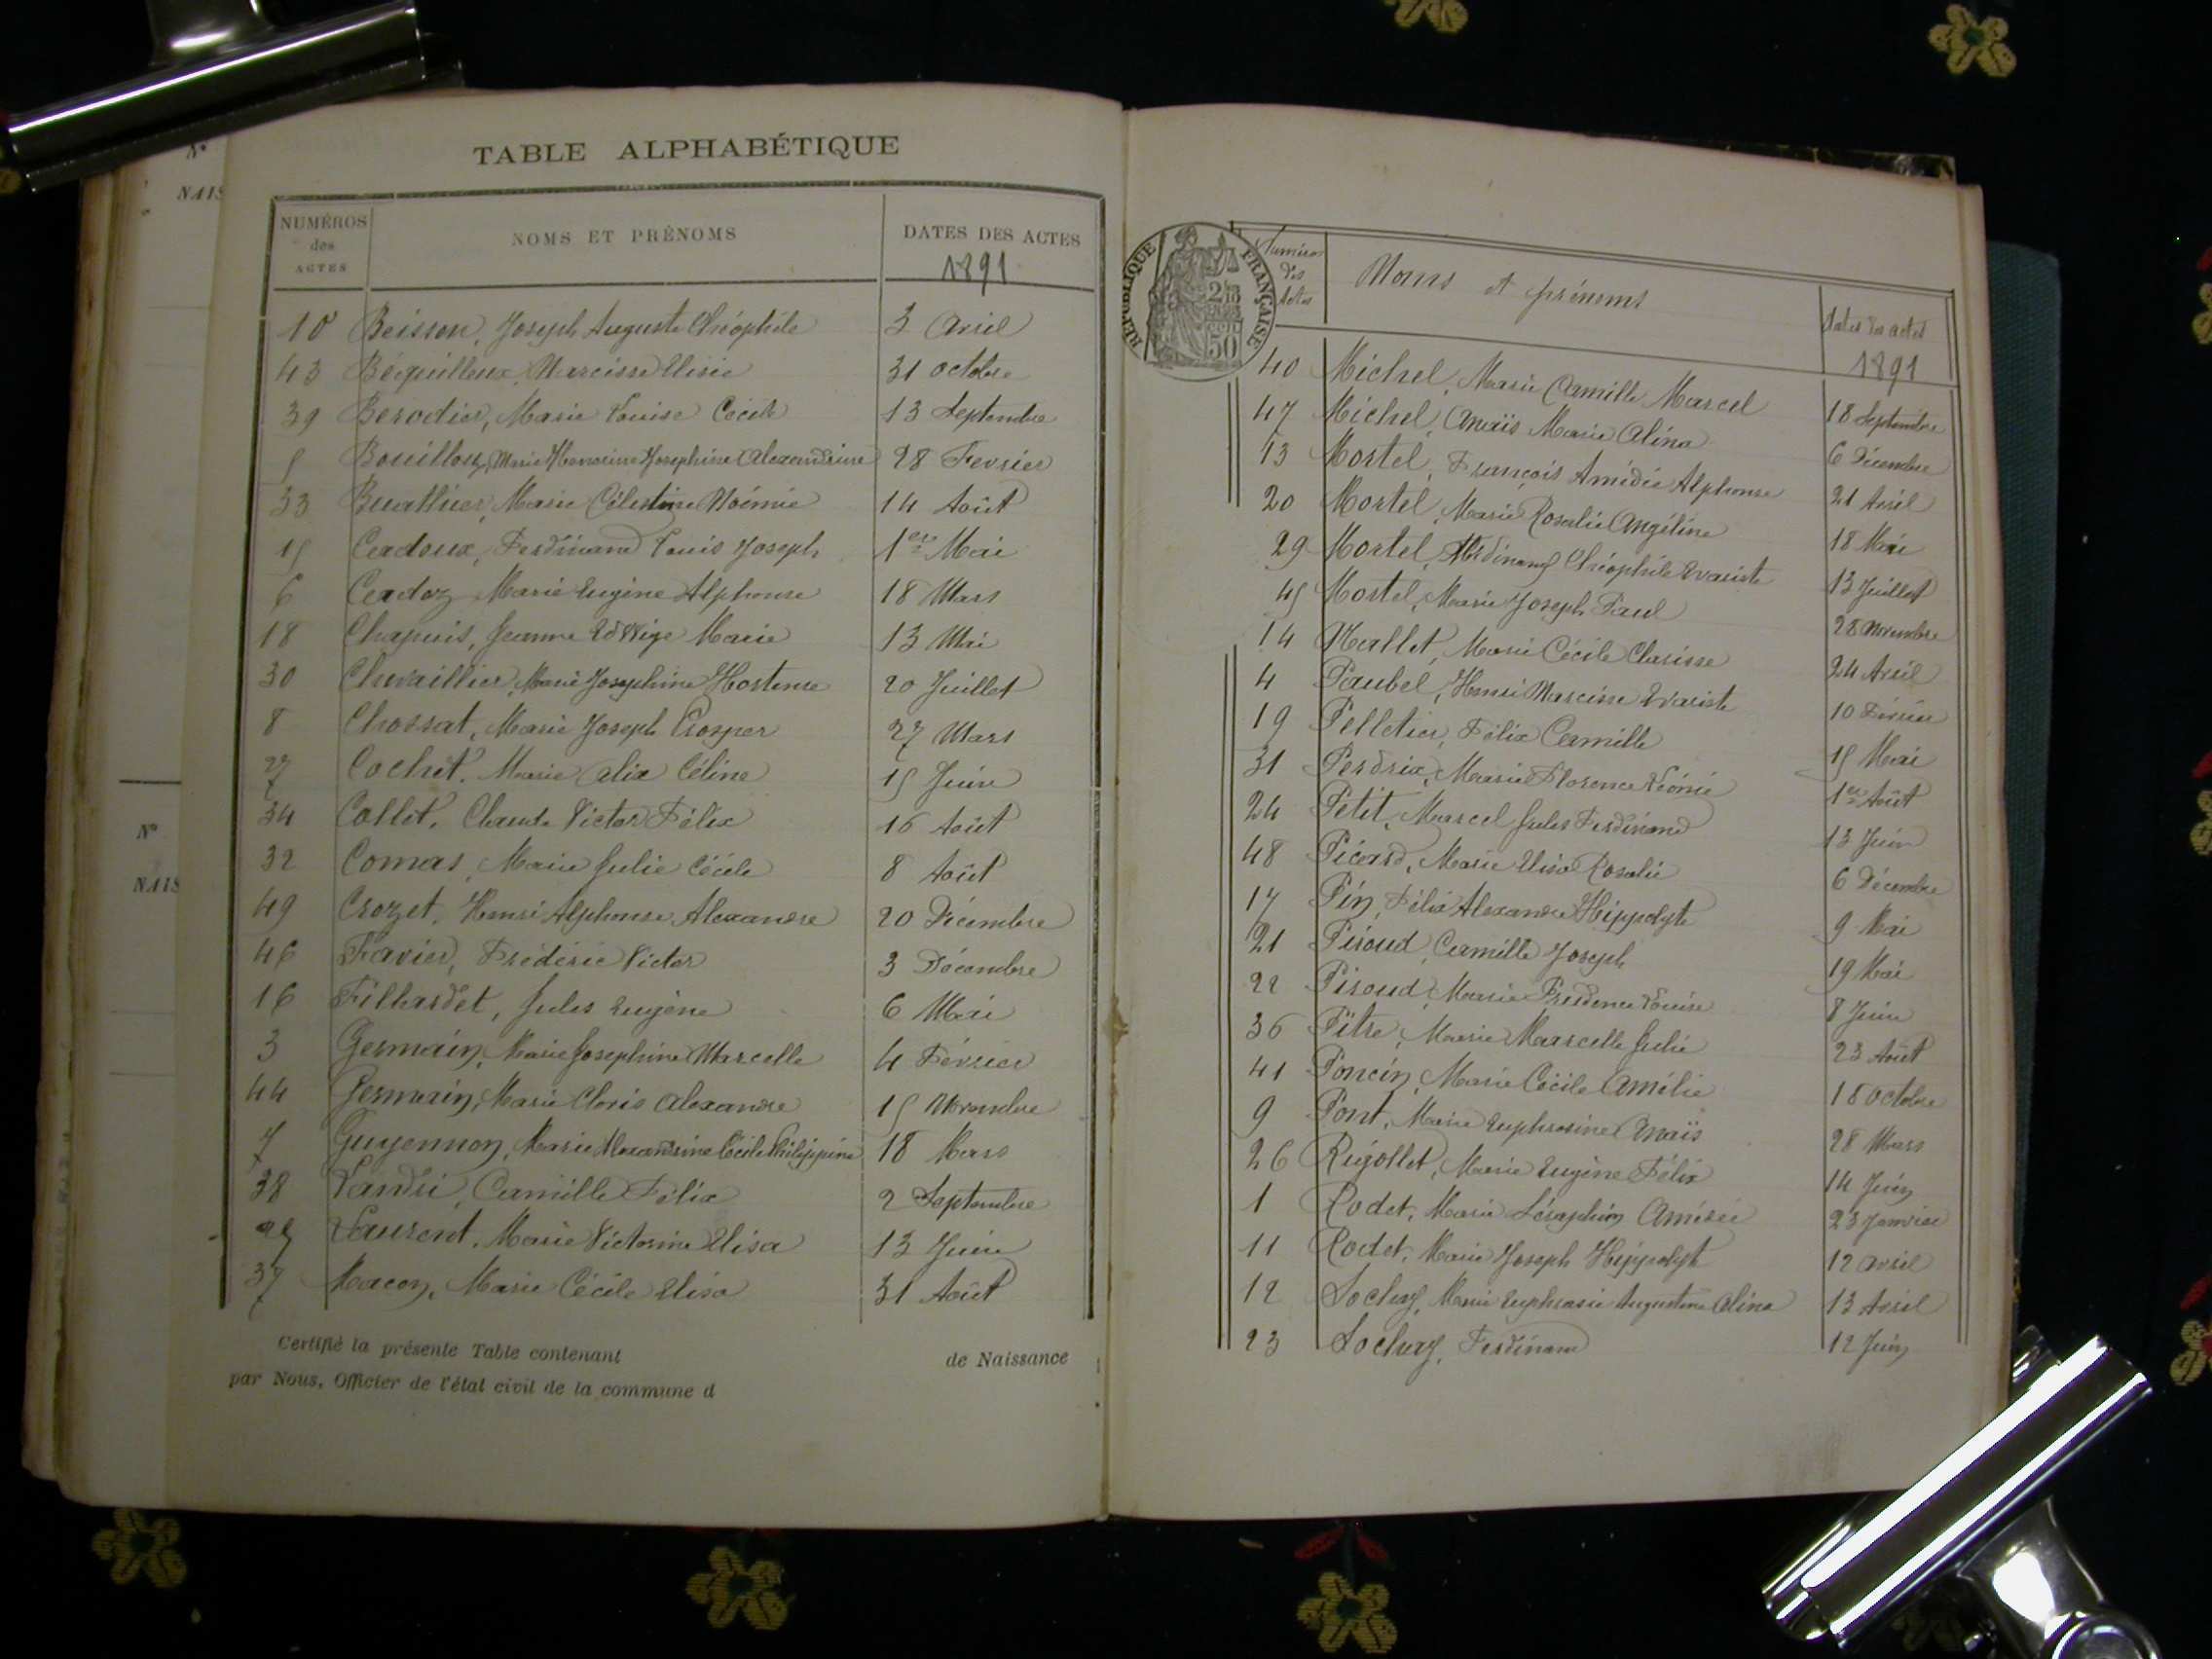 N°
NAIS
N°
NAIS
TABLE ALPHABÉTIQUE
NUMÉROS des ACTES NOMS ET PRÉNOMS DATES DES ACTES
1891
10 Beisson, Joseph Auguste Théophile 3 Avril
43 Béquilleux, Narcisse Elisée 31 Octobre
39 Berodier, Marie Louise Cécile 13 Septembre
5 Bouilloux, Marie Honorine Josephine Alexandrine 28 Fevrier
33 Buathier, Marie Célestine Noémie 14 Août
15 Cerdoux, Ferdinand Louis Joseph 1er Mai
6 Cerdoz Marie Eugène Alphonse 18 Mars
18 Chapuis, Jeanne Edwige Marie 13 Mai
30 Chevaillier, Marie Josephine Hortense 20 Juillet
8 Chossat, Marie Joseph Prosper 27 Mars
27 Cochet, Marie Alix Céline 15 Juin
34 Collet, Claude Victor Félix 16 Août
32 Comas, Marie Julie Cécile 8 Août
49 Crozet, Henri Alphonse Alexandre 20 Décembre
46 Favier, Fréderic Victor 3 Décembre
16 Fillardet, Jules Eugène 6 Mai
3 Germain, Marie Josephine Marcelle 4 Février
44 Germain, Marie Cloris Alexandre 15 Novembre
7 Guyennon, Marie Alexandrine Cécile Philippine 18 Mars
38 Landri, Camille Félix 2 Septembre
Laurent, Marie Victorine Elisa 13 Juin
37 Macon, Marie Cécile Elisa 31 Août
Certifié la présente Table contenant de Naissance
par Nous, Officier de l'état civil de la commune d
RÉPUBLIQUE FRANÇAISE
2/10
50
Numéros des Actes Noms et prénoms Dates des actes
1891
40 Michel, Marie Camille Marcel 18 Septembre
47 Michel, Anaïs Marie Alina 6 Décembre
13 Mortel, François Amédée Alphonse 21 Avril
20 Mortel, Marie Rosalie Angéline 18 Mai
29 Mortel, Ferdinand Théophile Evariste 13 Juillet
45 Mortel, Marie Joseph Paul 28 Novembre
14 Nallet, Marie Cécile Clarisse 24 Avril
4 Paubel, Henri Narcisse Evariste 10 Février
19 Pelletier, Félix Camille 15 Mai
31 Perdrix, Marie Florence Léonie 1er Août
24 Petit, Marcel Jules Ferdinand 13 Juin
48 Picard, Marie Elisa Rosalie 6 Décembre
17 Pin, Félix Alexandre Hippolyte 9 Mai
21 Piroud, Camille Joseph 19 Mai
22 Piroud, Marie Prudence Louise 8 Juin
36 Pitre, Marie Marcelle Julie 23 Août
41 Poncin, Marie Cécile Amélie 18 Octobre
9 Pont, Marie Euphrosine Anaïs 28 Mars
26 Rigollet, Marie Eugène Félix 14 Juin
1 Rodet, Marie Séraphin Amédée 23 Janvier
11 Rodet, Marie Joseph Hippolyte 12 Avril
12 Sochay, Marie Euphrasie Augustine Alina 13 Avril
23 Sochay, Ferdinand 12 Juin